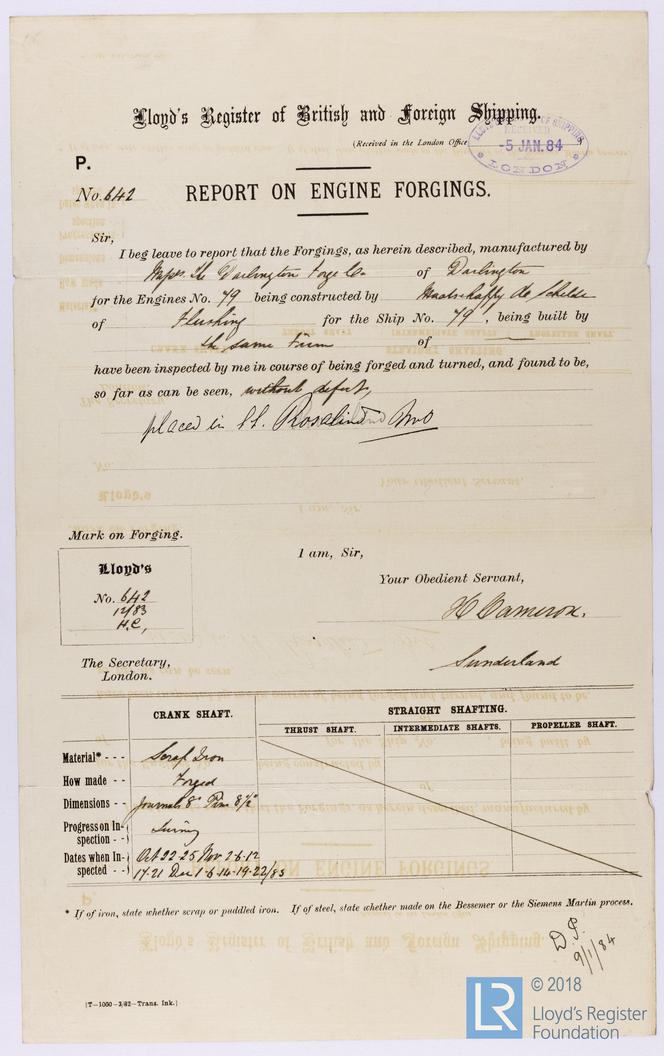 Lloyd's Register of British and Foreign Shipping.
(Received in the London Office
RECEIVED
-5 JAN. 84
LONDON
P.
No. 642
REPORT ON ENGINE FORGINGS.
Sir,
I beg leave to report that the Forgings, as herein described, manufactured by
Messrs. The Darlington Forge Co of Darlington
for the Engines No. 79 being constructed by Maatschappy de Schelde
of Flushing for the Ship No. 79, being built by
the same Firm of
have been inspected by me in course of being forged and turned, and found to be,
so far as can be seen, without defect,
placed in Rosalind
Mark on Forging.
I am, Sir,
Lloyd's
Your Obedient Servant,
No. 642
12/83
H.C,
H Cameron.
The Secretary,
London.
Sunderland
CRANK SHAFT.
STRAIGHT SHAFTING.
THRUST SHAFT. INTERMEDIATE SHAFTS. PROPELLER SHAFT.
Material* - - - Scrap Iron
How made - - Forged
Dimensions - - Journals 8" Pin 8½"
Progress on In-
spection - - Turning
Dates when In- Oct 22-25 Nov. 2-6-12
spected - - 17-21 Dec 1-6-14-19-22/83
* If of iron, state whether scrap or puddled iron. If of steel, state whether made on the Bessemer or the Siemens Martin process.
9/1/84
[T—1000—3/82—Trans. Ink.]
LR
© 2018
Lloyd's Register
Foundation